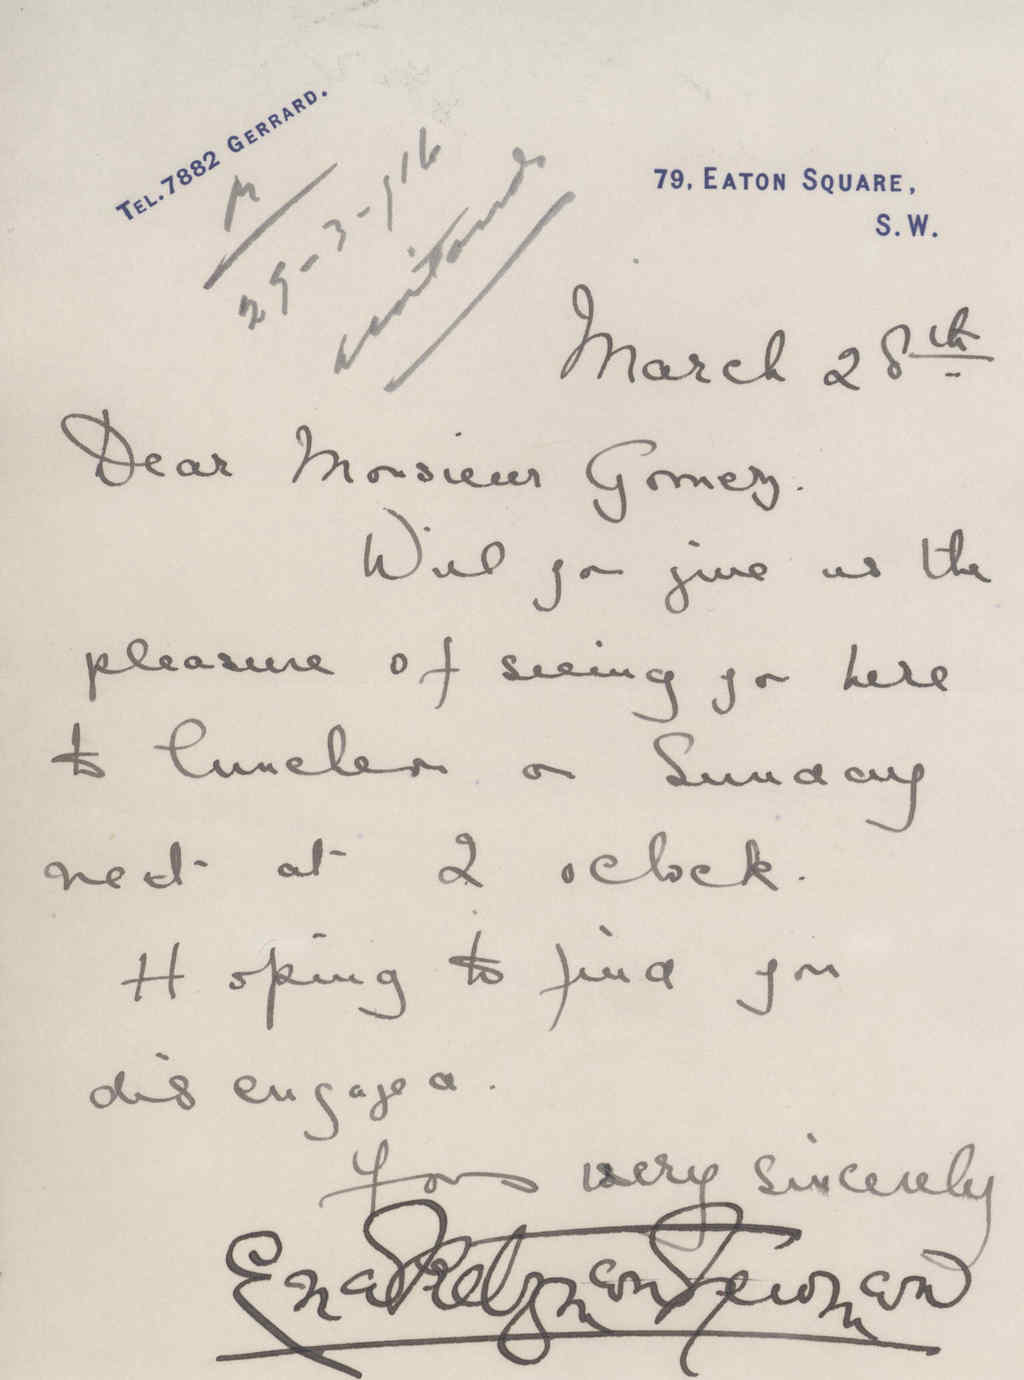 TEL. 7882 GERRARD.
79, EATON SQUARE,
S.W.
29-3-916
March 28th
Dear Monsieur Gomez.
Will you give us the
pleasure of seeing you here
to luncheon on Sunday
next at 2 oclock.
Hoping to find you
disengaged.
Yours very sincerely